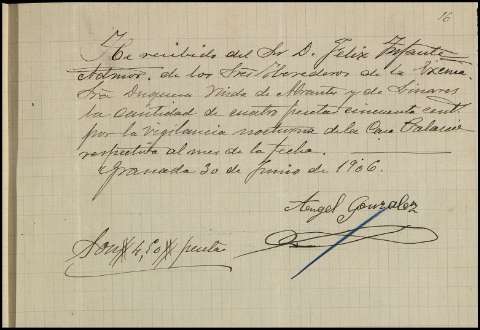 16
He recibido del Sr. D. Felix Infante
Admor. de los Sres Herederos de la Excma
Sra Duquesa Viuda de Abrantes y de Linares
la cantidad de cuatro pesetas cincuenta cent.
por la vigilancia nocturna de la Casa Palacio
respectiva al mes de la fecha.
Granada 30 de Junio de 1906.
Angel Gonzalez
Son # 4,50 # pesetas